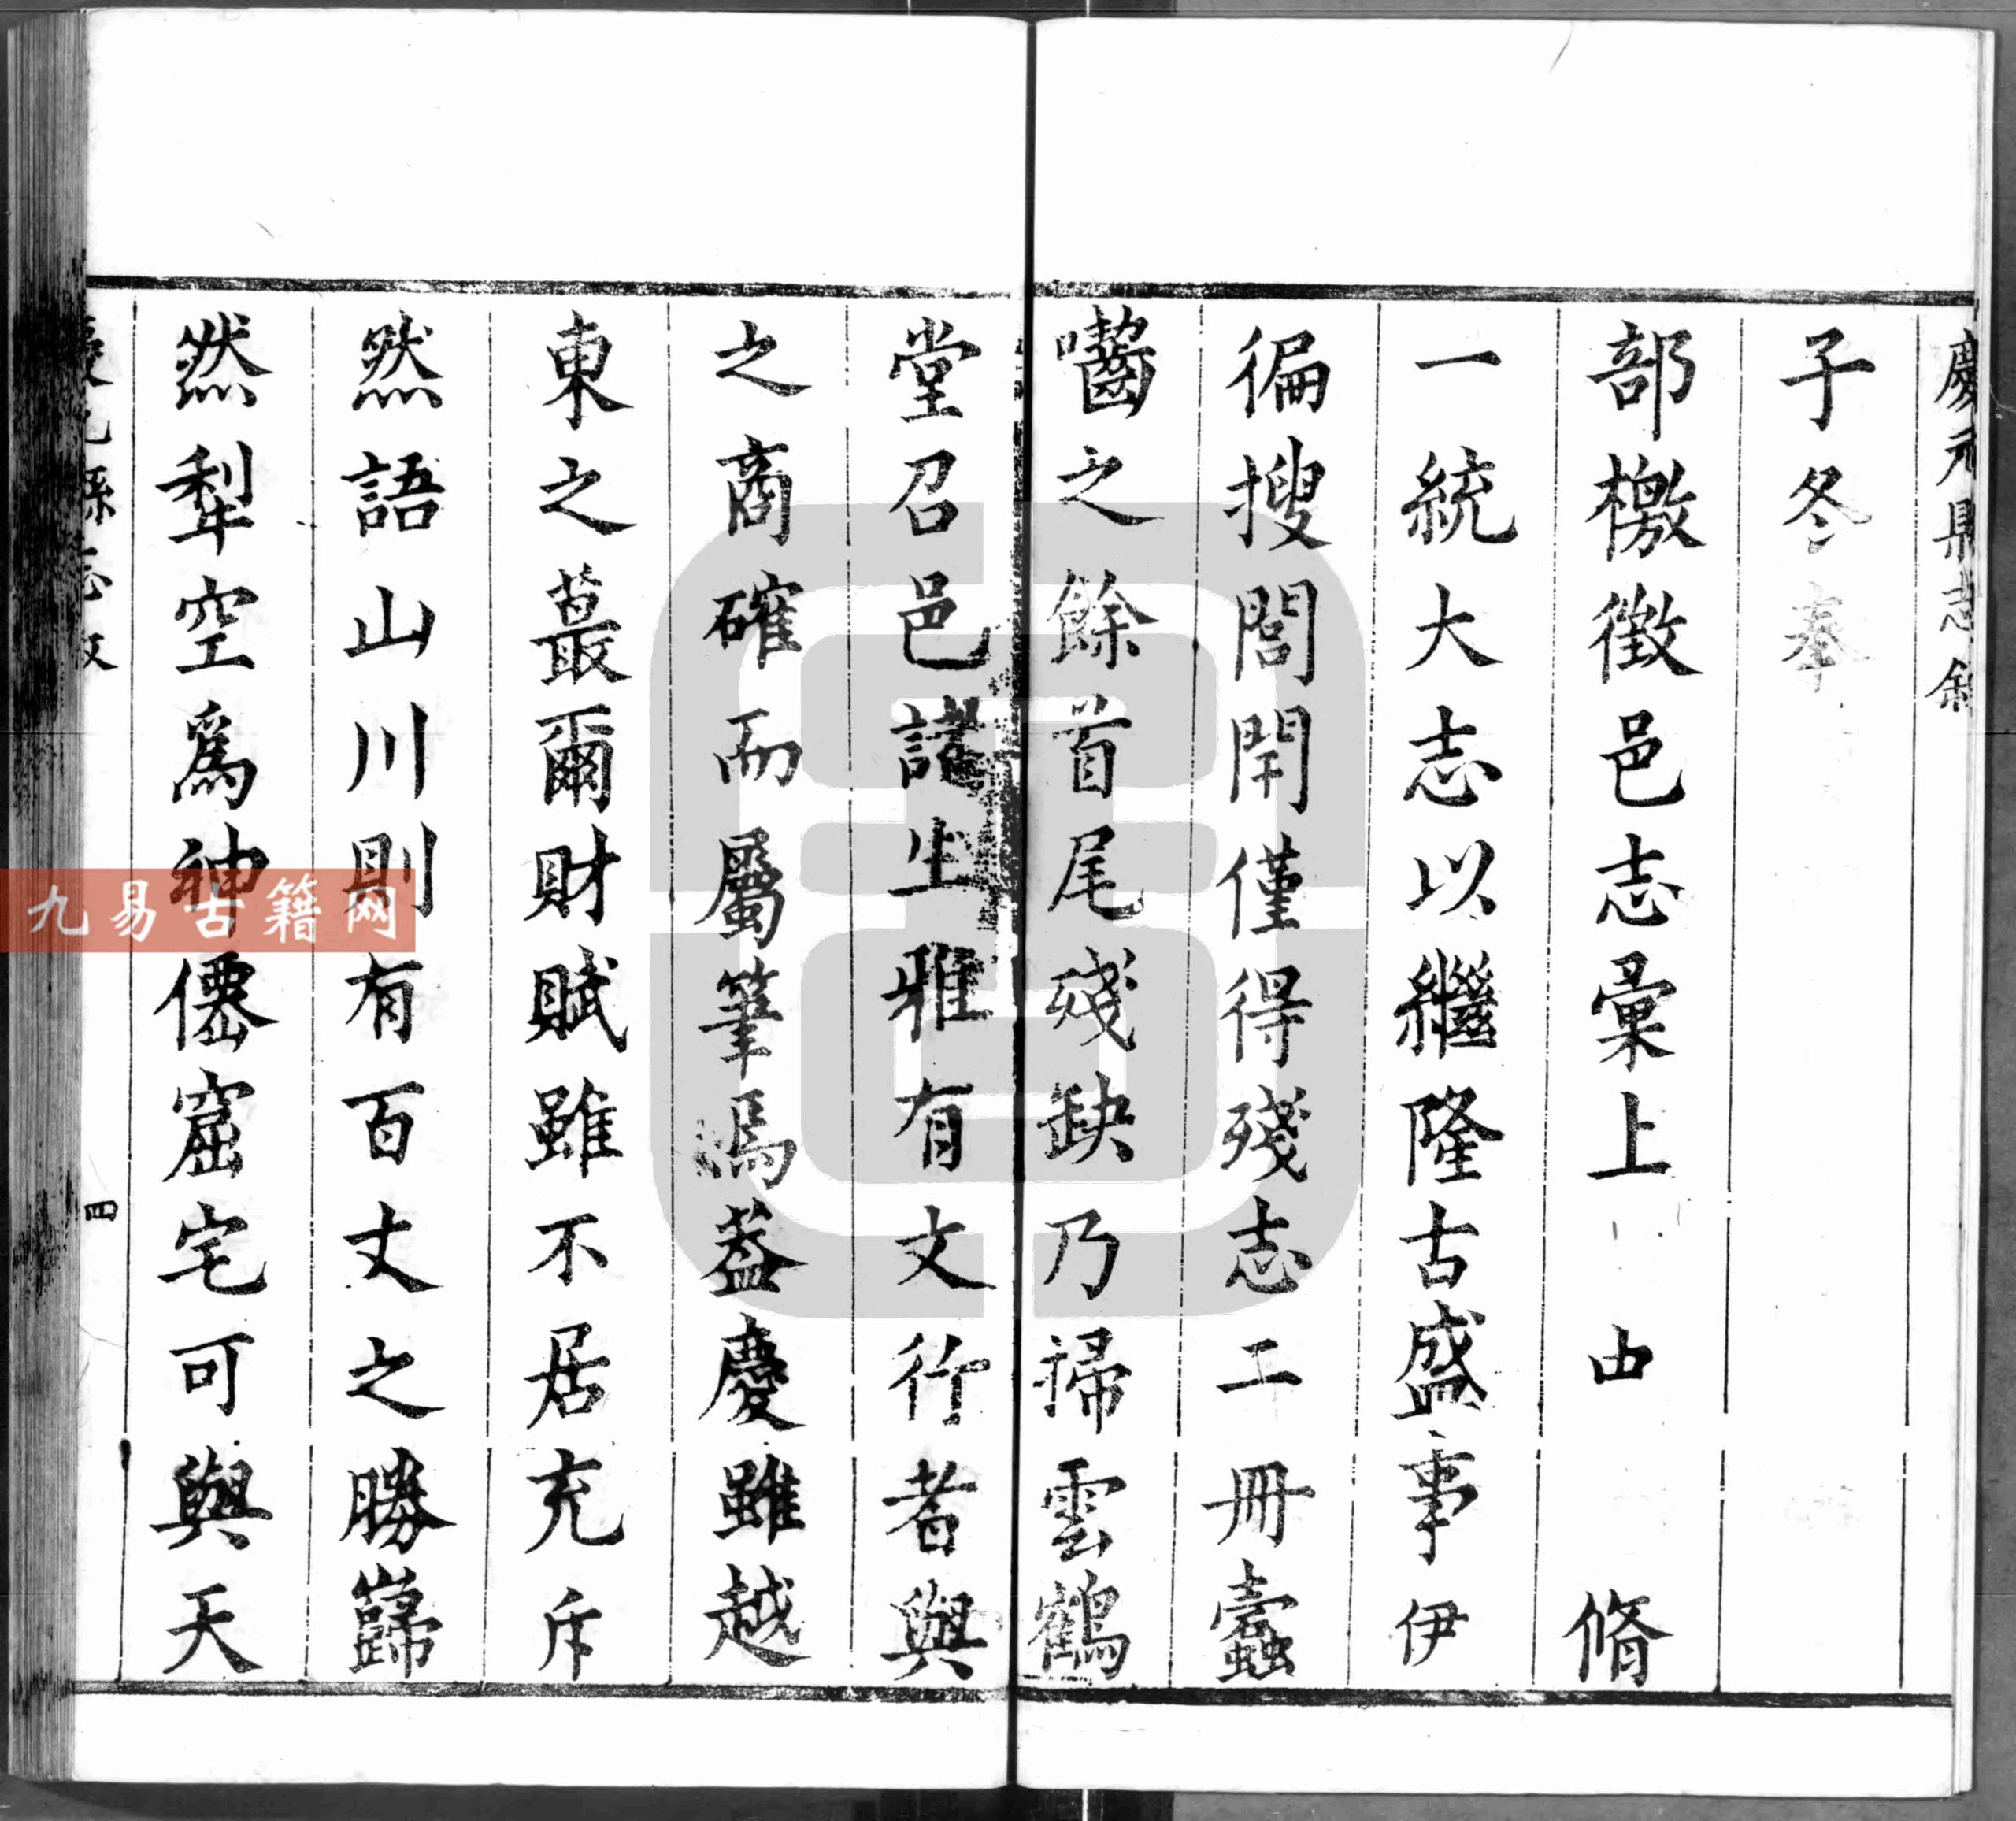 慶元縣志敘
子冬奉
部檄徵邑志彙上由脩
一統大志以繼隆古盛事伊
徧搜閭閈僅得殘志二冊蠹
嚙之餘首尾殘缺乃掃雲鶴
堂召邑諸生雅有文行者與
之商確而屬筆焉葢慶雖越
東之蕞爾財賦雖不居充斥
然語山川則有百丈之勝巋
然犁空爲神僊窟宅可與天
慶元縣志敘
四
九易古籍网